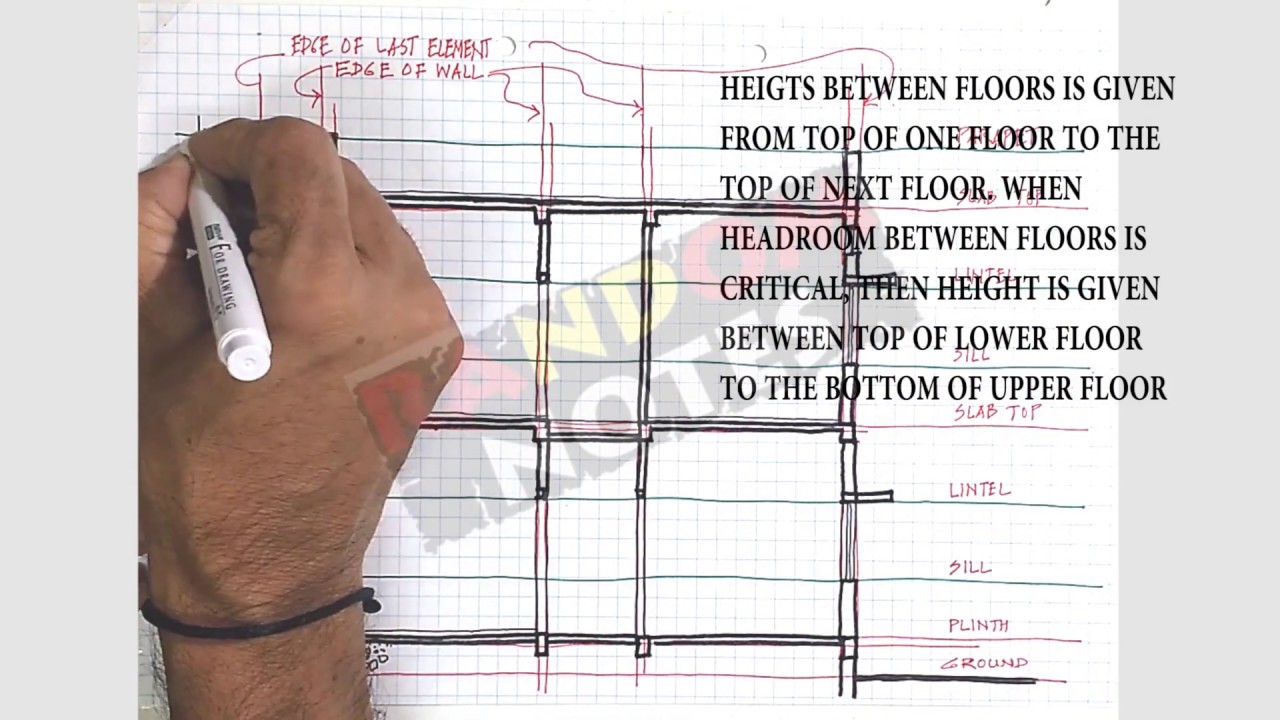 EDGE OF LAST ELEMENT
EDGE OF WALL
HEIGTS BETWEEN FLOORS IS GIVEN
FROM TOP OF ONE FLOOR TO THE
TOP OF NEXT FLOOR. WHEN
HEADROOM BETWEEN FLOORS IS
CRITICAL, THEN HEIGHT IS GIVEN
BETWEEN TOP OF LOWER FLOOR
TO THE BOTTOM OF UPPER FLOOR
PARAPET
SLAB TOP
LINTEL
SILL
SLAB TOP
LINTEL
SILL
PLINTH
GROUND
FOR DRAWING
RANDOM
NOTES